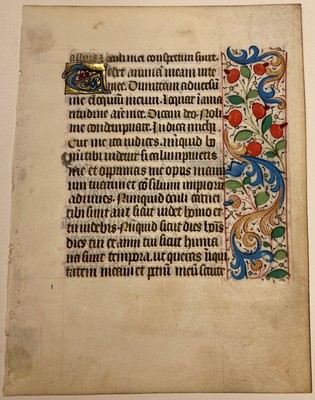 conspectum
edet animam meam vite
mee. Dimittam aduersum
me eloquium meum. loquar i ama
ritudine anime mee. Dicam deo. Noli
me condempnare. Indica michi
Cur me ita iudices. Nūquid bo
tibi videtur si calumpnieris
me et opprimas me opus manu
um tuarum et cōsilium impiorū
adiuues. Nunquid oculi carnei
tibi sunt aut sicut videt homo et
tu videbis. Nūquid sicut dies hoīs
dies tui et anni tui sicut huma
na sunt tempora. ut queras iniqui
tatem meam et pctm̄ meū scrute